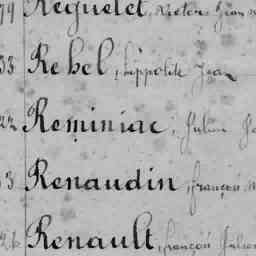 Reguelet, Victor Jean
Rebel, hippolite Jean
Reminiac, Julien
33 Renaudin, françois
Renault, françois Julien